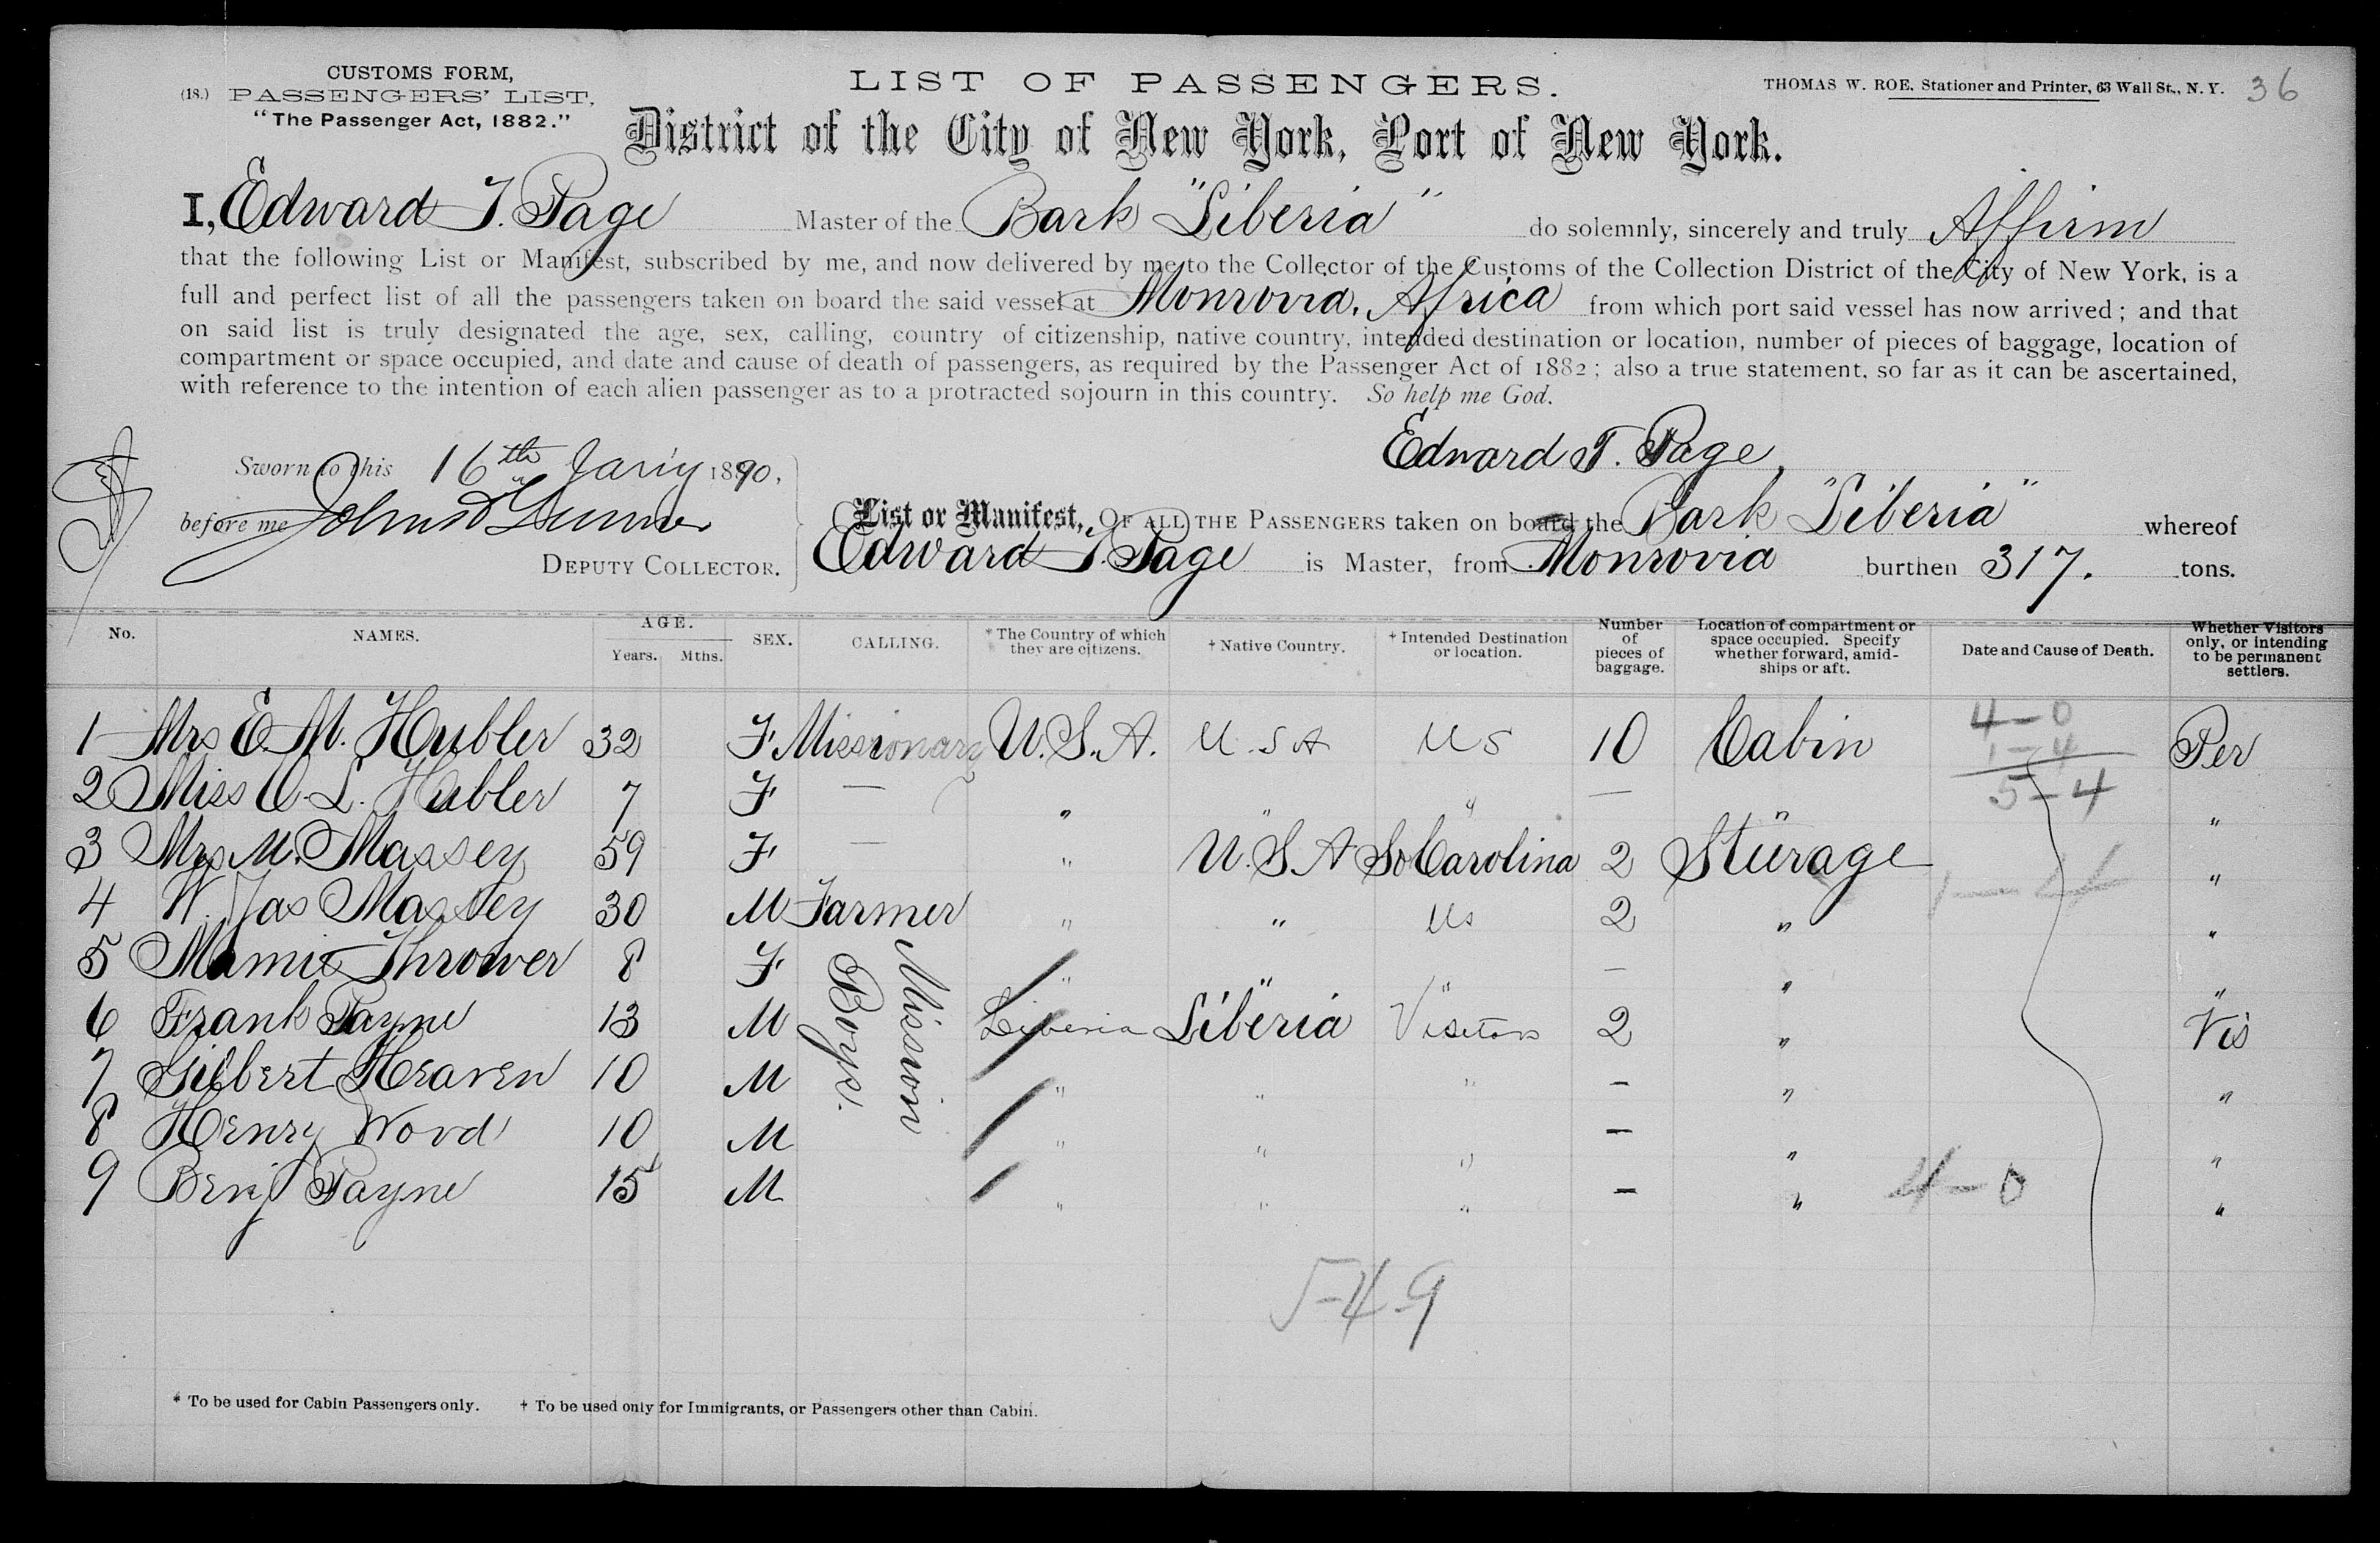 CUSTOMS FORM,
(18.) PASSENGERS' LIST,
"The Passenger Act, 1882."
LIST OF PASSENGERS.
THOMAS W. ROE. Stationer and Printer, 63 Wall St., N. Y. 36
District of the City of New York, Port of New York.
I, Edward T. Page Master of the Bark "Liberia" do solemnly, sincerely and truly Affirm
that the following List or Manifest, subscribed by me, and now delivered by me to the Collector of the Customs of the Collection District of the City of New York, is a
full and perfect list of all the passengers taken on board the said vessel at Monrovia, Africa from which port said vessel has now arrived; and that
on said list is truly designated the age, sex, calling, country of citizenship, native country, intended destination or location, number of pieces of baggage, location of
compartment or space occupied, and date and cause of death of passengers, as required by the Passenger Act of 1882; also a true statement, so far as it can be ascertained,
with reference to the intention of each alien passenger as to a protracted sojourn in this country. So help me God.
Sworn to this 16th Jan'y 1890,
before me
DEPUTY COLLECTOR.
Edward T. Page
List or Manifest, OF ALL THE PASSENGERS taken on board the Bark "Liberia" whereof
Edward T. Page is Master, from Monrovia burthen 317. tons.
No. NAMES. AGE. Years. Mths. SEX. CALLING. * The Country of which they are citizens. † Native Country. † Intended Destination or location. Number of pieces of baggage. Location of compartment or space occupied. Specify whether forward, amidships or aft. Date and Cause of Death. Whether Visitors only, or intending to be permanent settlers.
1 Mrs E. M. Hubler 32 F Missionary U.S.A. U.S.A US 10 Cabin 4-0 1-4 5-4 Per
2 Miss O. L. Hubler 7 F — " " " — " "
3 Mrs M. Massey 59 F — " U.S.A So Carolina 2 Stürage "
4 W. Jas Massey 30 M Farmer " " Us 2 " 1-4 "
5 Mamie Thrower 8 F " " " — " "
6 Frank Payne 13 M Mission Boys. Liberia Liberia Visitors 2 " Vis
7 Gilbert Heaven 10 M " " " — " "
8 Henry Wood 10 M " " " — " "
9 Benj Payne 15 M " " " — " 4-0 "
5-4-9
* To be used for Cabin Passengers only. † To be used only for Immigrants, or Passengers other than Cabin.